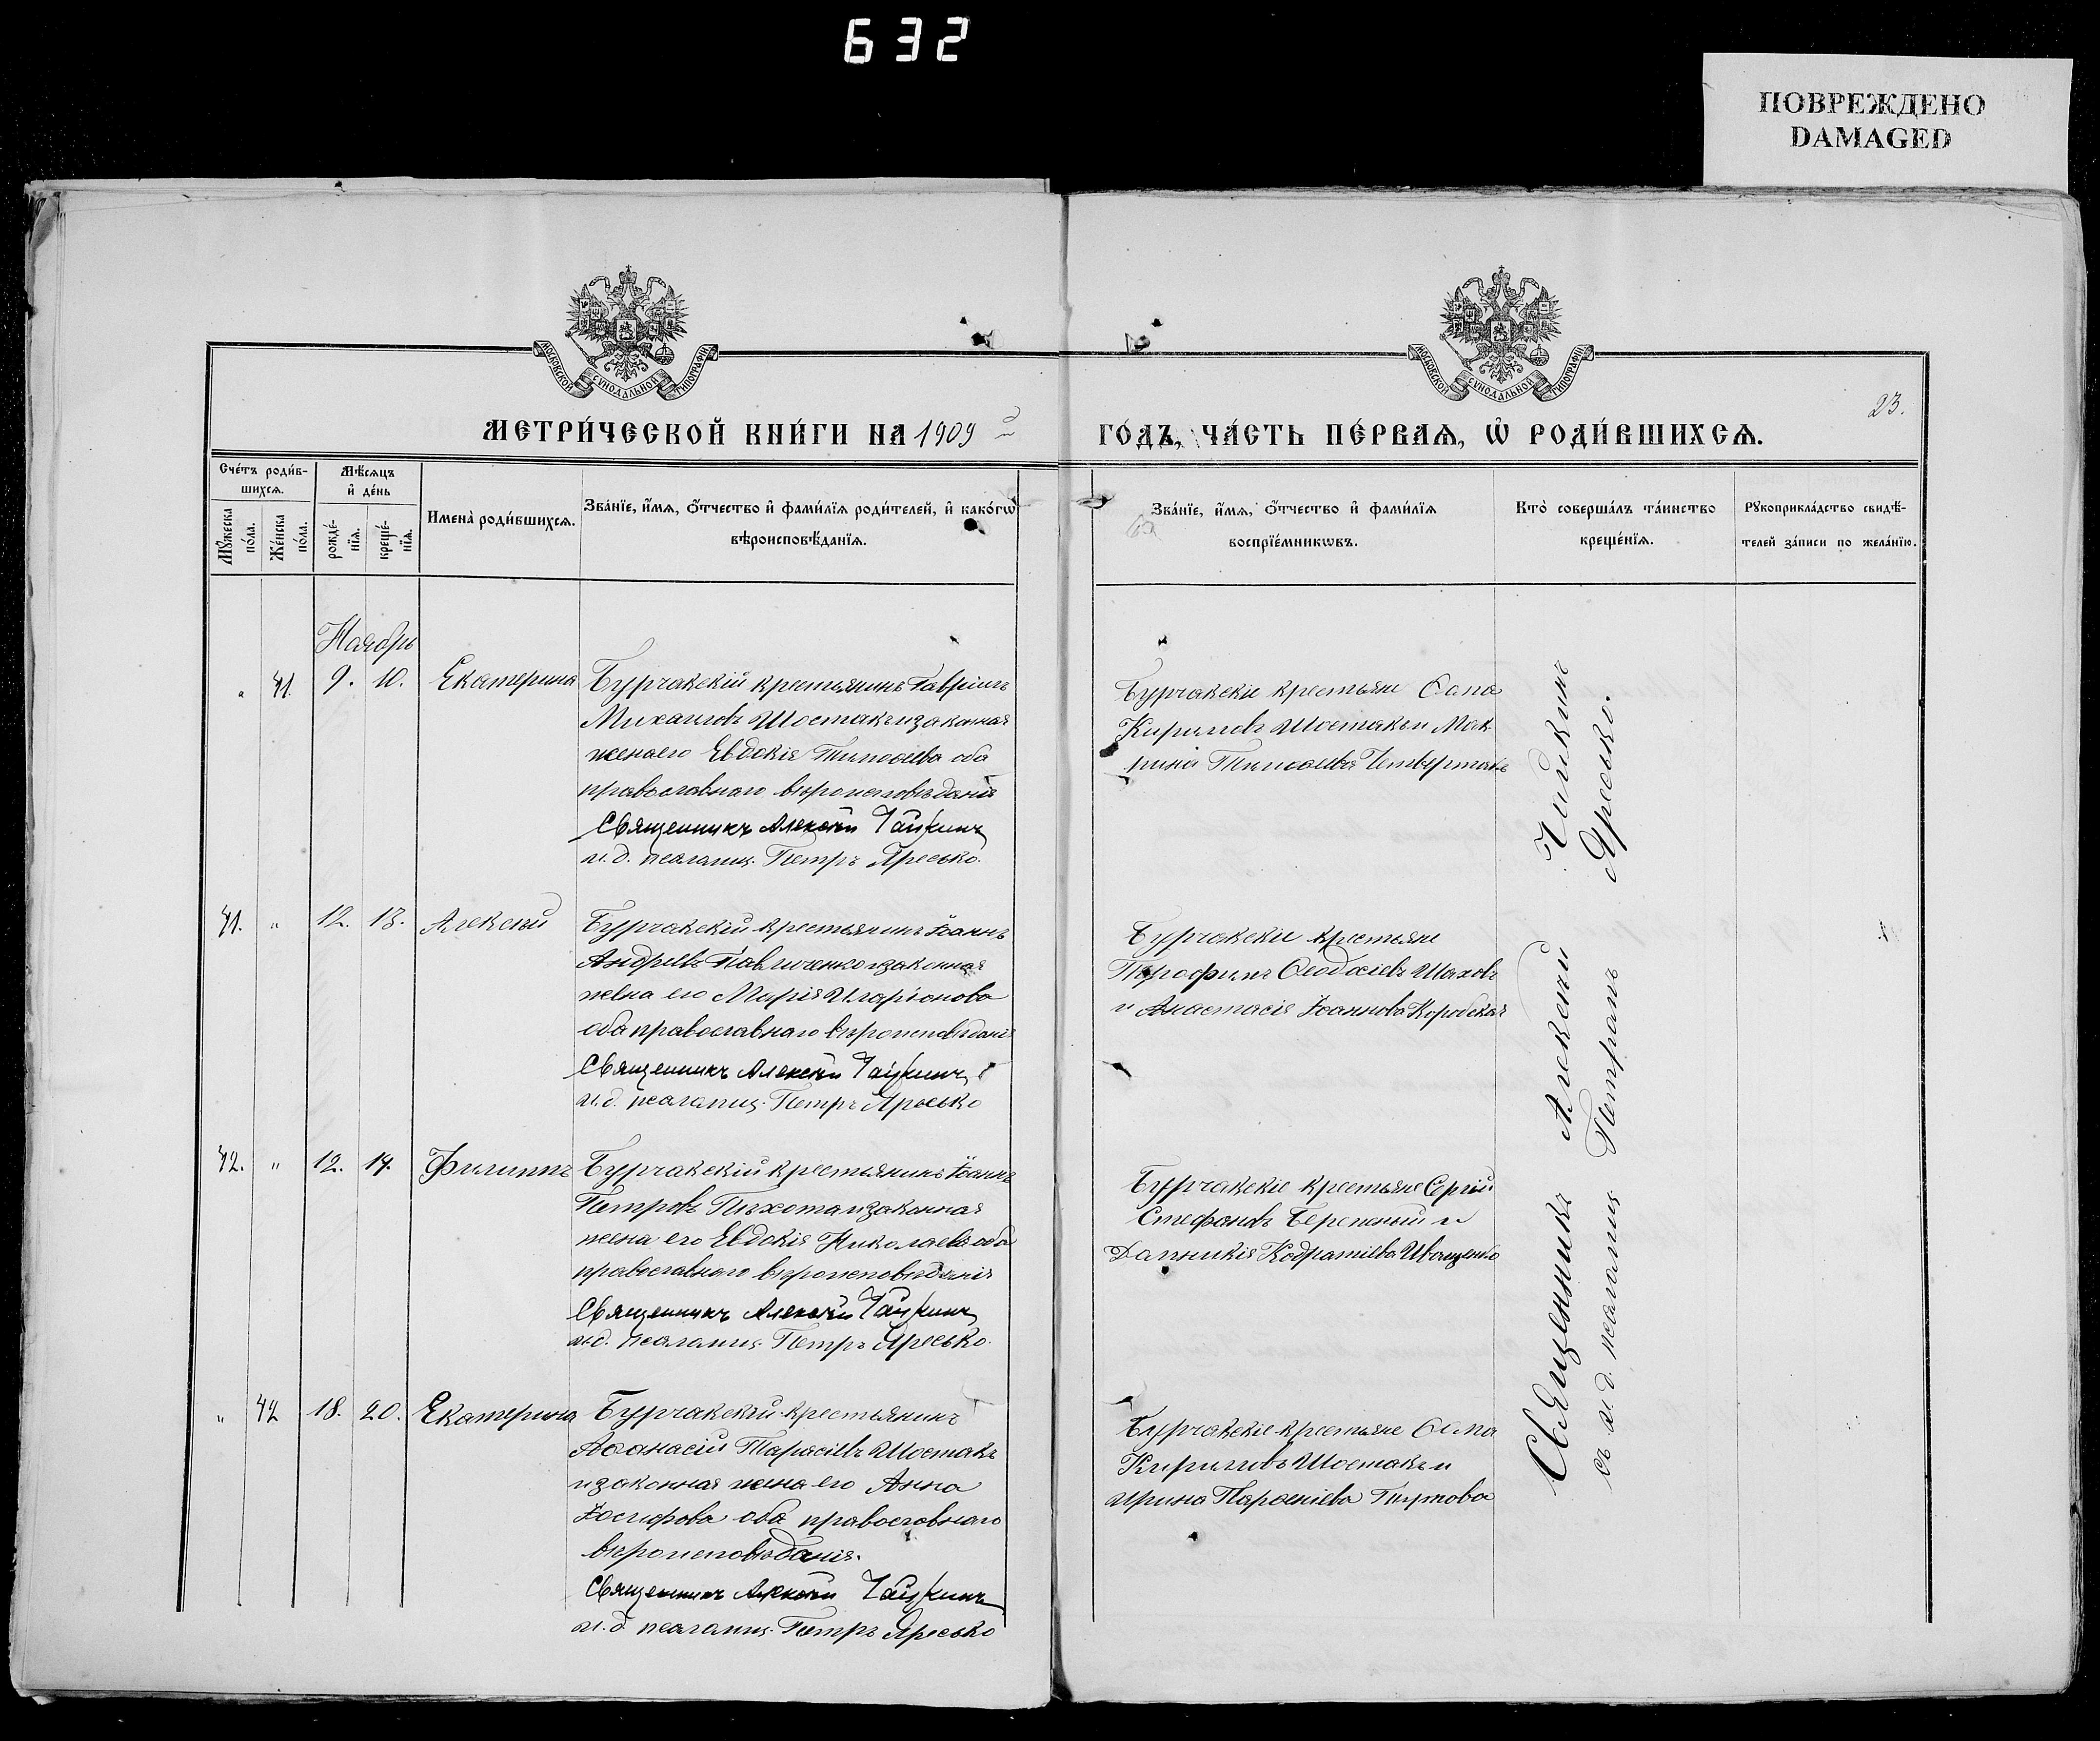 632
ПОВРЕЖДЕНО
DAMAGED
МОСКОВСКОЙ СѴНОДАЛЬНОЙ ТИПОГРАФІИ
МОСКОВСКОЙ СѴНОДАЛЬНОЙ ТИПОГРАФІИ
23.
МЕТРИ́ЧЕСКОЙ КНИ́ГИ НА 1909
ГО́ДЪ, ЧА́СТЬ ПЕ́РВАѦ, Ѡ҆ РОДИ́ВШИХСѦ.
Сче́тъ роди́в-
шихсѧ.
Мꙋ́жеска по́ла.
Же́нска по́ла.
Мѣ́сѧцъ
и҆ де́нь
рожде́-
нїѧ.
креще́-
нїѧ.
Имена̀ роди́вшихсѧ.
Зва́нїе, и҆́мѧ, ѻ҆́тчество и҆ фами́лїѧ роди́телей, и҆ како́гѡ
вѣроисповѣ́данїѧ.
Зва́нїе, и҆́мѧ, ѻ҆́тчество и҆ фами́лїѧ
воспрїе́мникѡвъ.
Кто̀ соверша́лъ та́инство
креще́нїѧ.
Рꙋкоприкла́дство свидѣ́-
телей за́писи по жела́нїю.
Ноябрь
" 41. 9. 10. Екатерина
Бурчакскій крестьянинъ Гавріилъ
Михаиловъ Шостакъ и законная
жена его Евдокія Тимоѳіева оба
православнаго вѣроисповѣданія
Священникъ Алексѣй
и. д. псаломщ. Петръ Яресько.
Бурчакскіе крестьяне
Кириловъ Шостакъ и Мак-
рина Тимоѳіева
41. " 12. 13. Алексѣй
Бурчакскій крестьянинъ Іоаннъ
Андреевъ Павличенко и законная
жена его Марія Иларіонова
оба православнаго вѣроисповѣданія
Священникъ Алексѣй
и. д. псаломщ. Петръ Яресько
Бурчакскіе крестьяне
Трофимъ Ѳеодосіевъ Шаховъ
и Анастасія Іоаннова Коробская
42. " 12. 14. Филиппъ
Бурчакскій крестьянинъ Іоаннъ
Петровъ Пѣхота и законная
жена его Евдокія Николаева оба
православнаго вѣроисповѣданія
Священникъ Алексѣй
и. д. псаломщ. Петръ Яресько.
Бурчакскіе крестьяне Сергій
Стефановъ и
Домникія Кодратіева Иващенко
" 42 18. 20. Екатерина
Бурчакскій крестьянинъ
Аѳанасій Тарасіевъ Шостакъ
и законная жена его Анна
Іосифова оба православнаго
вѣроисповѣданія.
Священникъ Алексѣй
и. д. псаломщ. Петръ Яресько
Бурчакскіе крестьяне
Кириловъ Шостакъ и
Ирина Парѳеніева
Священникъ Алексѣй
съ и. д. псаломщ. Петромъ Яресько.